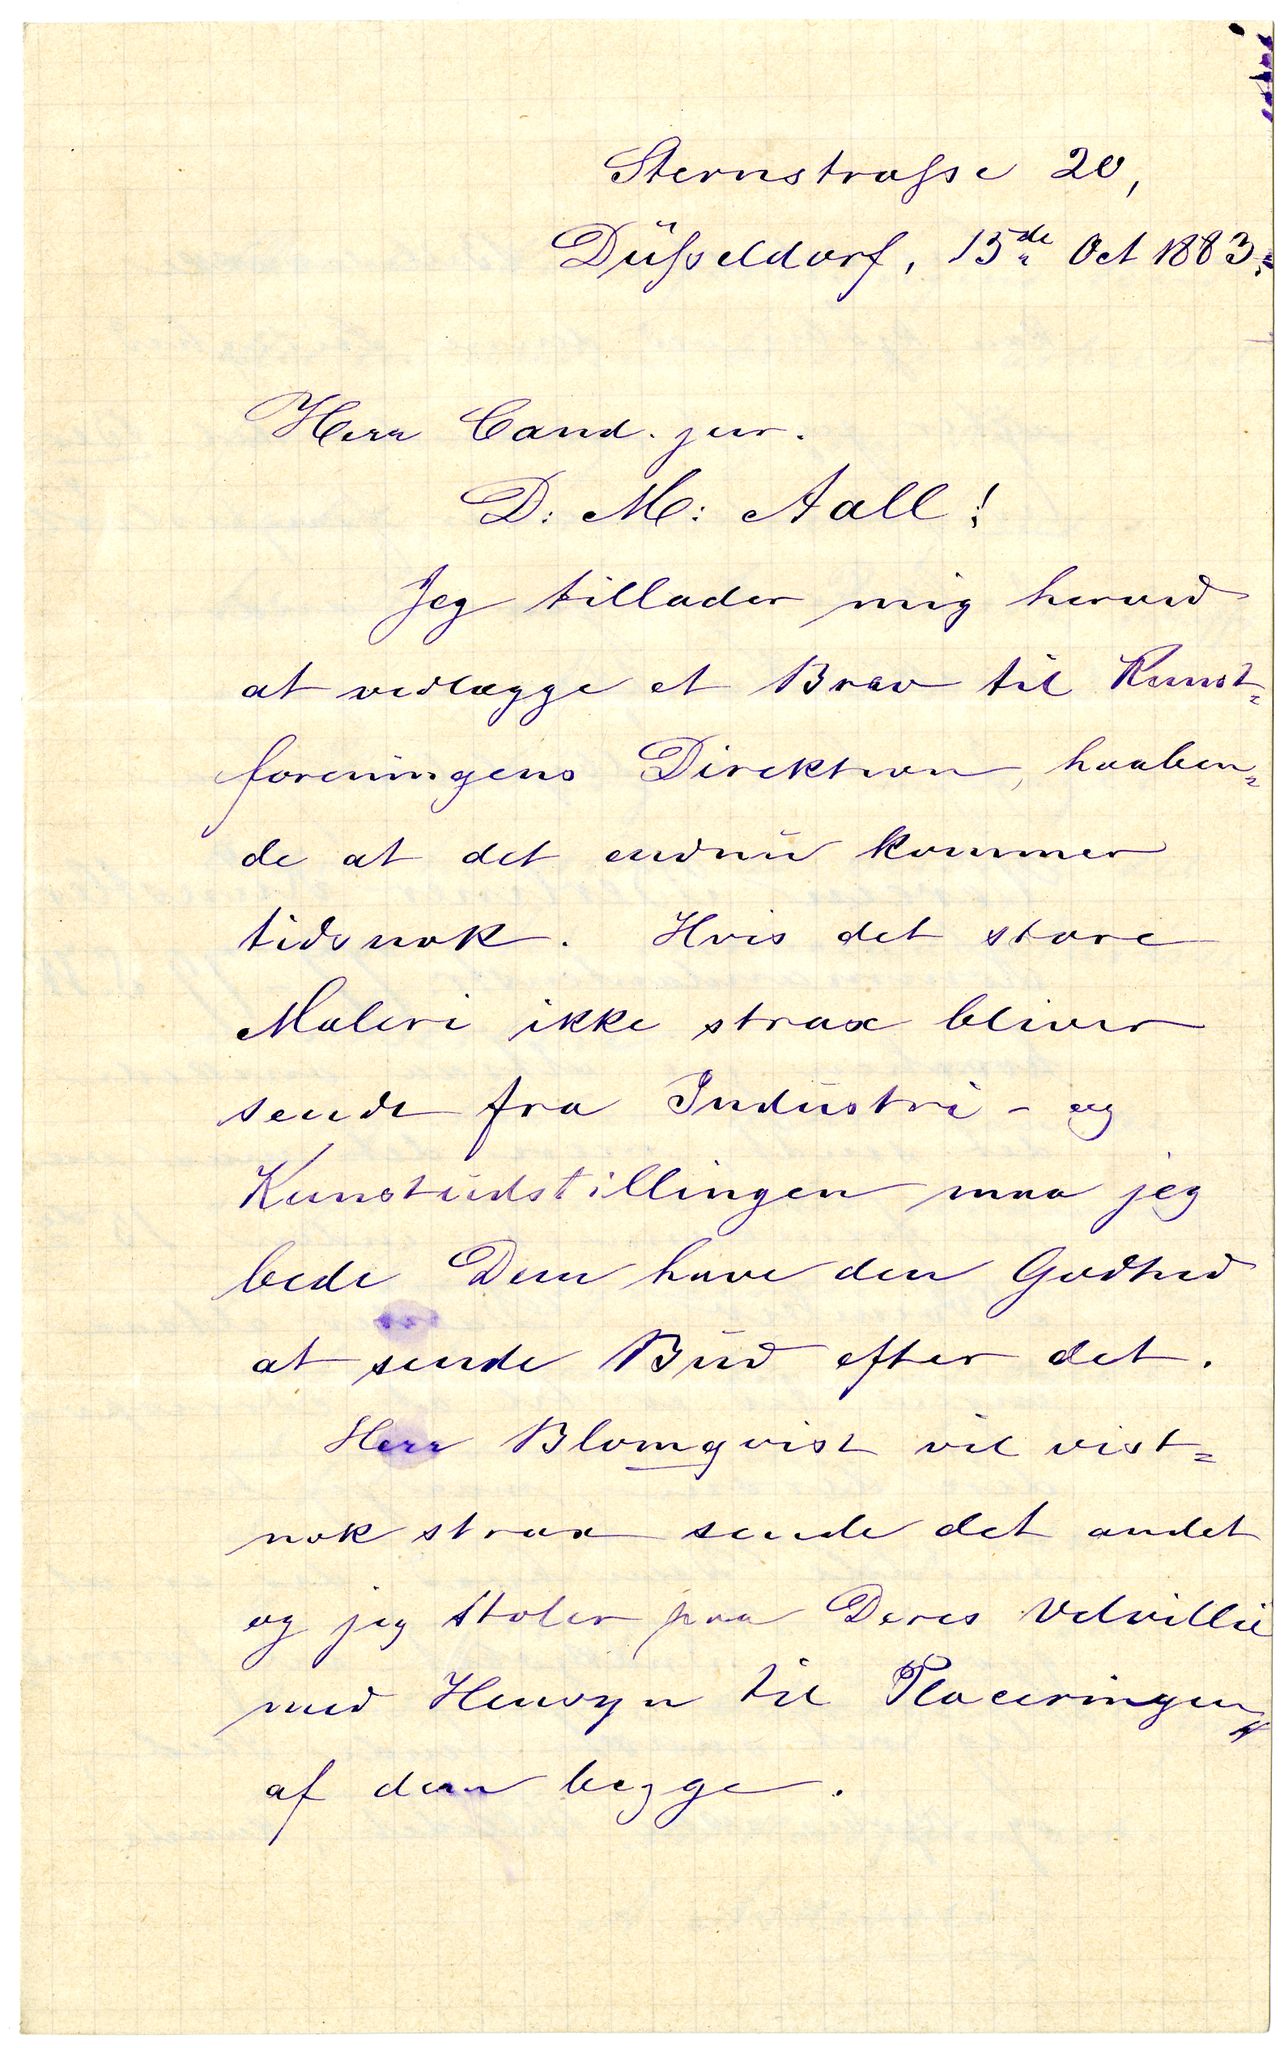 Sternstraße 20,
Düßeldorf, 15de Oct 1883.
Herr Cand. jur.
D: M: Aall!
Jeg tillader mig herved
at vedlægge et Brev til Kunst=
foreningens Direktion, haaben=
de at det endnu kommer
tidsnok. Hvis det store
Maleri ikke strax bliver
sendt fra Industri- og
Kunstudstillingen maa jeg
bede Dem have den Godhed
at sende Bud efter det.
Herr Blomqvist vil vist=
nok strax sende det andet
og jeg stoler paa Deres Velvillie
med Hensyn til Placeringen
af dem begge.